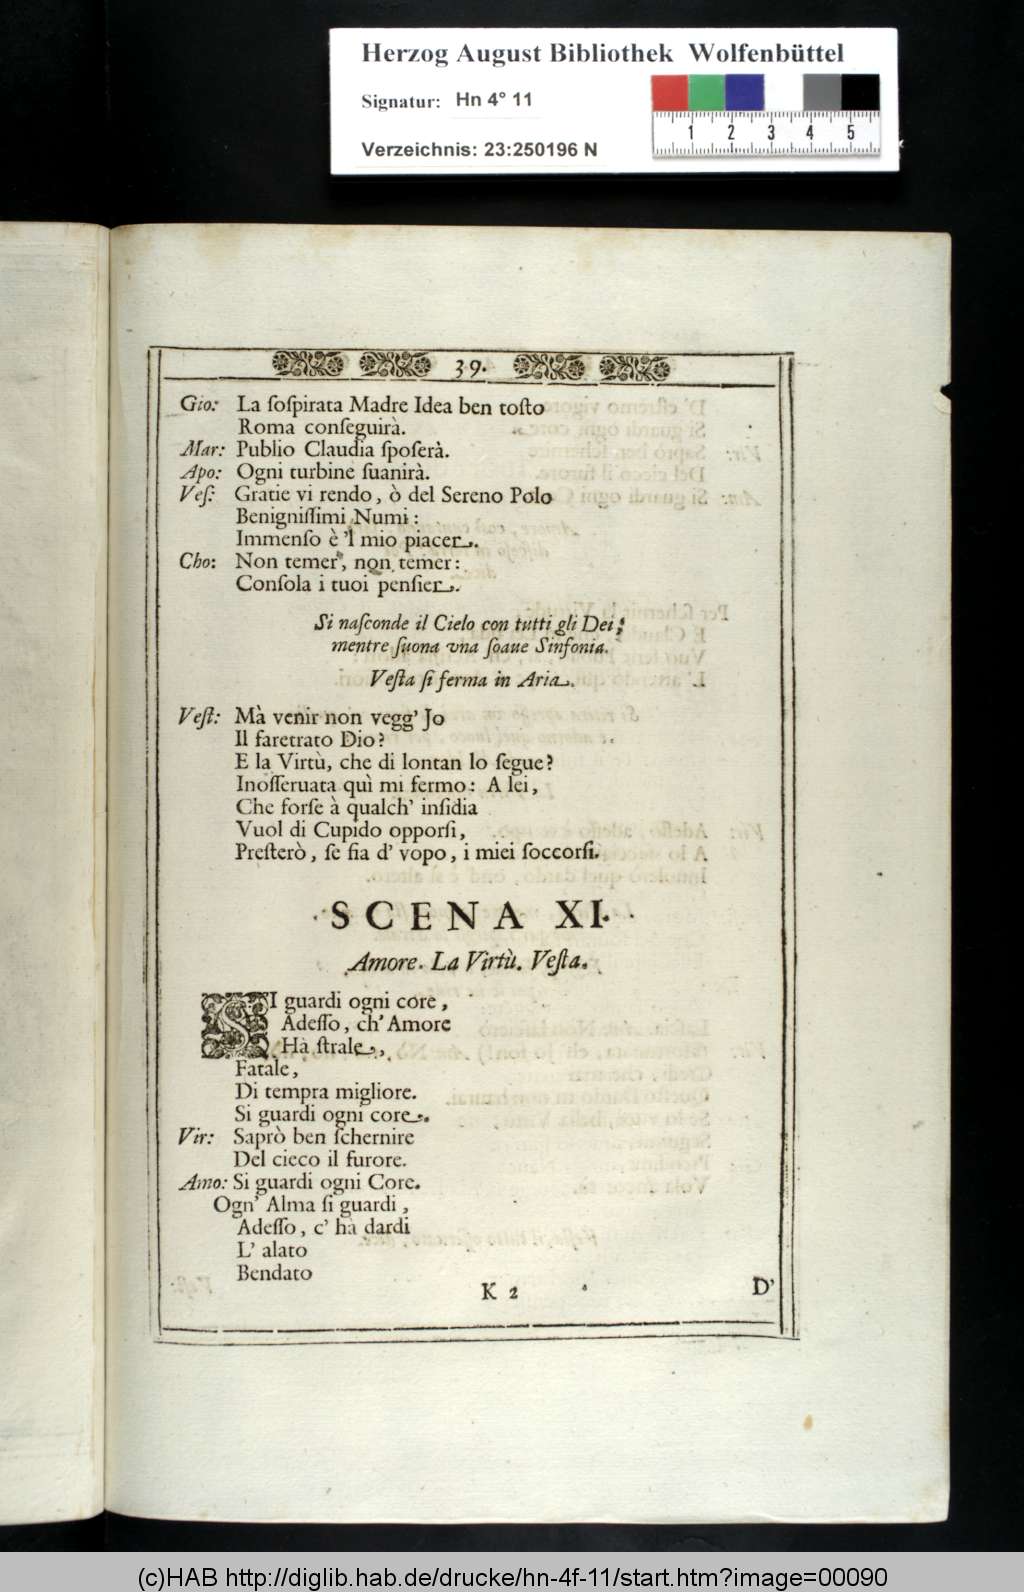 Herzog August Bibliothek Wolfenbüttel
Signatur: Hn 4° 11
Verzeichnis: 23:250196 N
1 2 3 4 5
39.
Gio: La ſoſpirata Madre Idea ben toſto
Roma conſeguirà.
Mar: Publio Claudia ſpoſerà.
Apo: Ogni turbine ſuanirà.
Veſ: Gratie vi rendo, ò del Sereno Polo
Benigniſſimi Numi:
Immenſo è 'l mio piacer.
Cho: Non temer, non temer:
Conſola i tuoi penſier.
Si naſconde il Cielo con tutti gli Dei;
mentre ſuona vna ſoaue Sinfonia.
Veſta ſi ferma in Aria.
Veſt: Mà venir non vegg' Jo
Il faretrato Dio?
E la Virtù, che di lontan lo ſegue?
Inoſſeruata quì mi fermo: A lei,
Che forſe à qualch' inſidia
Vuol di Cupido opporſi,
Preſterò, ſe ſia d' vopo, i miei ſoccorſi.
SCENA XI.
Amore. La Virtù. Veſta.
SI guardi ogni core,
Adeſſo, ch' Amore
Hà ſtrale,
Fatale,
Di tempra migliore.
Si guardi ogni core.
Vir: Saprò ben ſchernire
Del cieco il furore.
Amo: Si guardi ogni Core.
Ogn' Alma ſi guardi,
Adeſſo, c' hà dardi
L' alato
Bendato
K 2 D'
(c)HAB http://diglib.hab.de/drucke/hn-4f-11/start.htm?image=00090